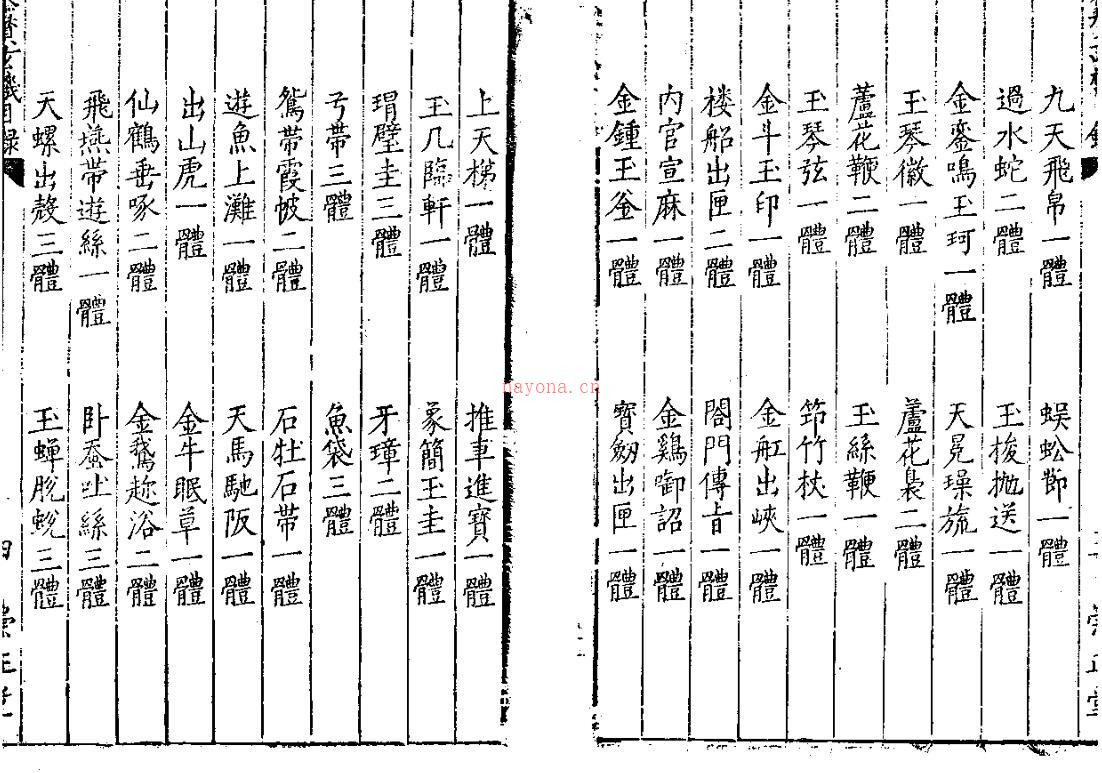 九天飛帛一體　蜈蚣節一體
過水蛇二體　玉梭拋送一體
金鑾鳴玉珂一體　天冕璪旒一體
玉琴徽一體　蘆花裊二體
蘆花鞭二體　玉絲鞭一體
玉琴弦一體　笻竹杖一體
金斗玉印一體　金舡出峽一體
楼船出匣二體　閤門傳旨一體
内官宣麻一體　金鷄啣詔一體
金鍾玉釜一體　寳劒出匣一體
上天梯一體　推車進寳一體
玉几臨軒一體　象簡玉圭一體
琄璧圭三體　牙璋二體
弓帶三體　魚袋三體
鴛帶霞帔二體　石牡石帶一體
遊魚上灘一體　天馬馳阪一體
出山虎一體　金牛眠草一體
仙鶴垂啄二體　金鵞趂浴二體
飛燕帶遊絲一體　卧蚕吐絲三體
天螺出殼三體　玉蟬脫蛻三體
玄機目録
四　崇正堂
nayona.cn